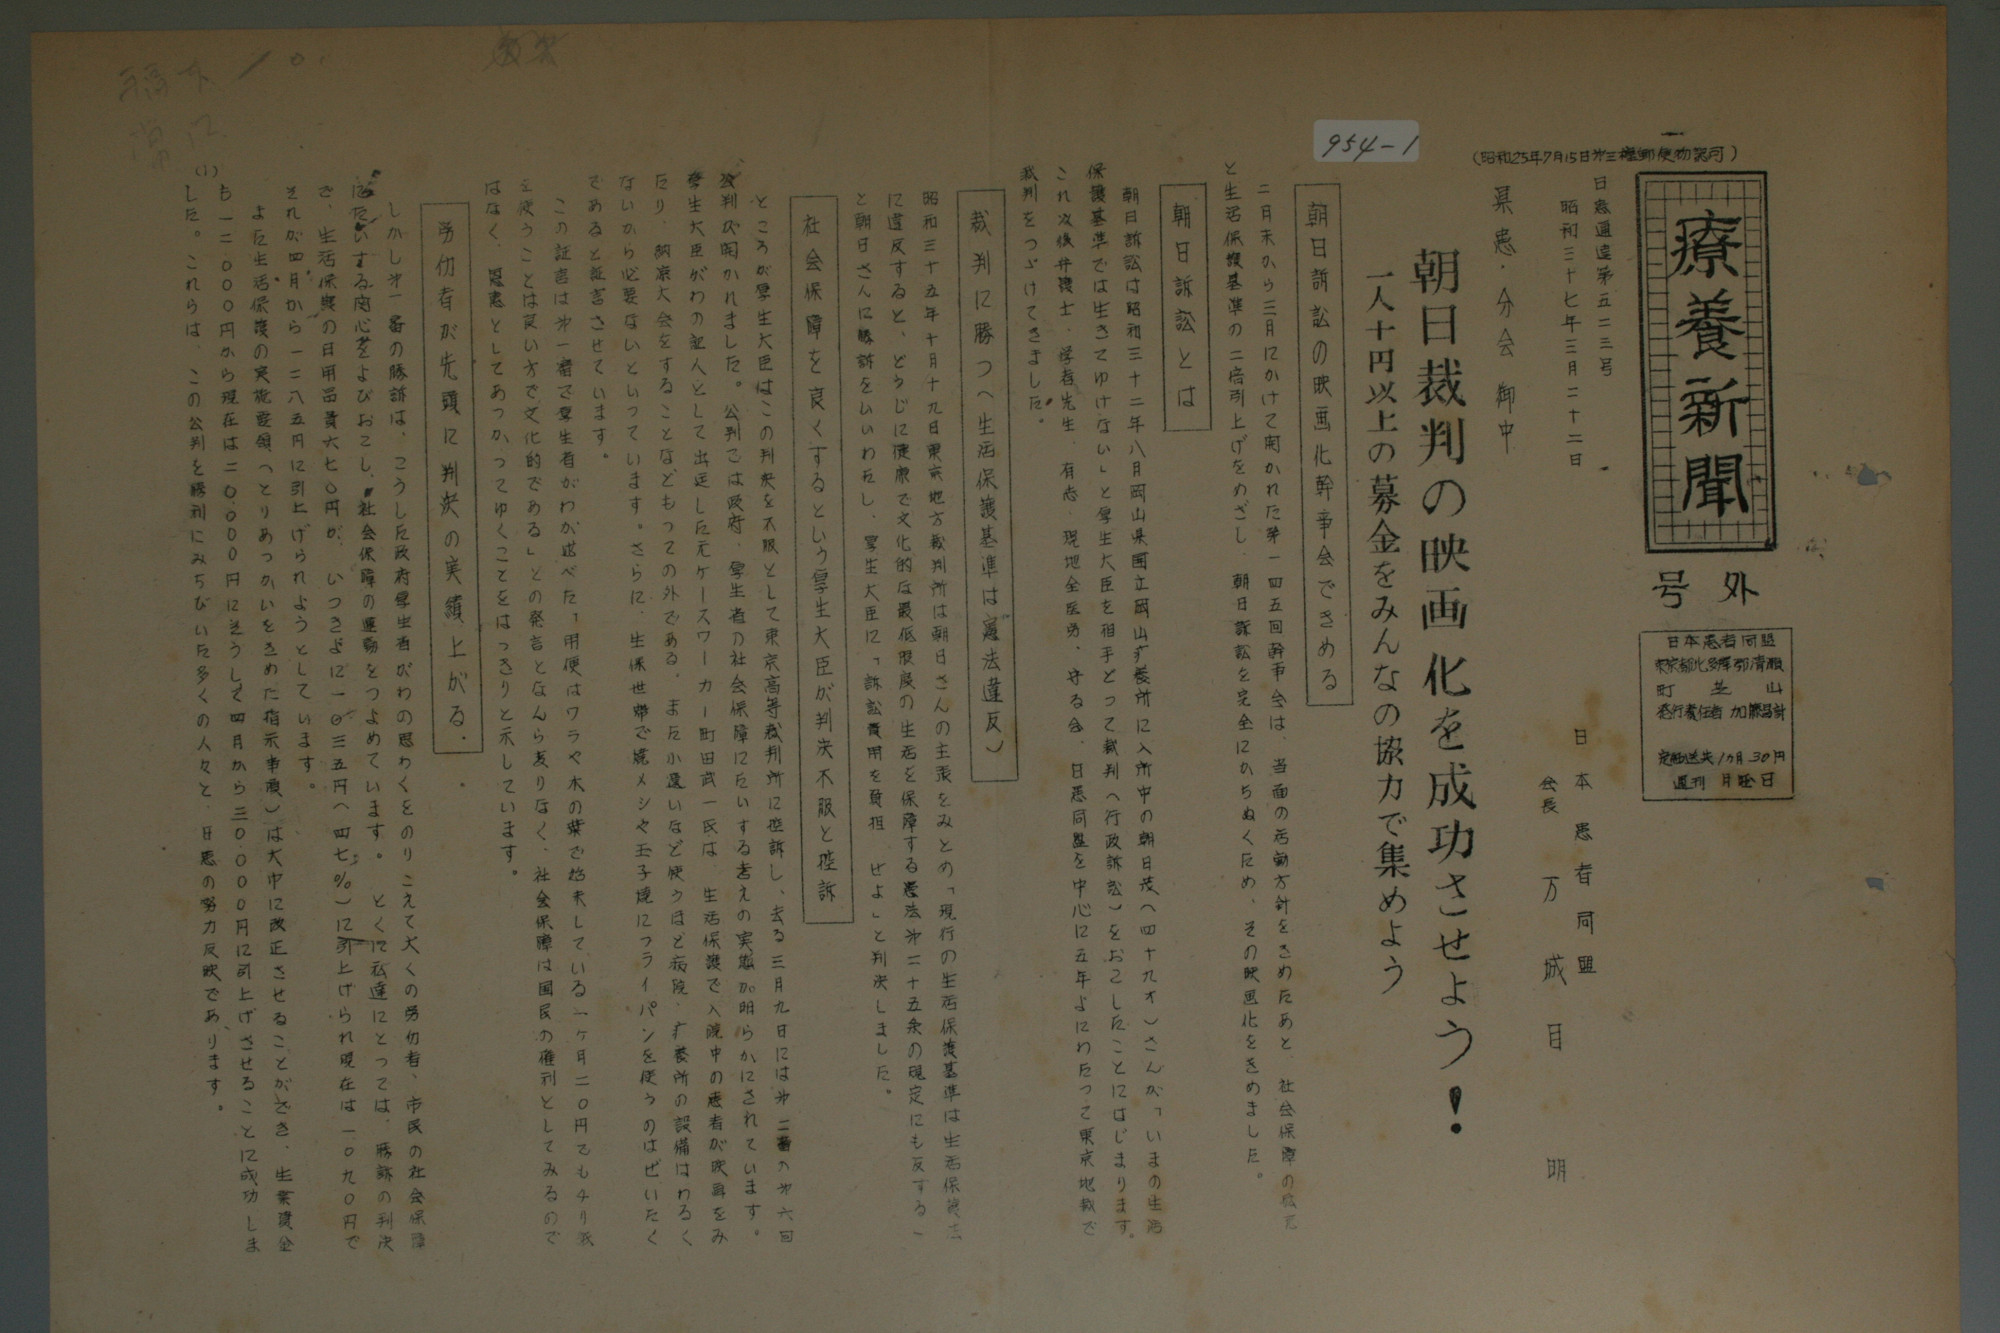 954-1
(昭和25年7月15日第三種郵便物認可)
療養新聞
号外
日本患者同盟
東京都北多摩郡清瀬
町芝山
発行責任者 加藤昌計
定価送共1カ月30円
週刊 月曜日
日患通達第五二三号
昭和三十七年三月二十二日
県患・分会御中
日本患者同盟
会長 万城目明
朝日裁判の映画化を成功させよう!
一人十円以上の募金をみんなの協力で集めよう
朝日訴訟の映画化幹事会できめる
二月末から三月にかけて開かれた第一四五回幹事会は、当面の活動方針をきめたあと、社会保障の拡充
と生活保護基準の二倍引上げをめざし、朝日訴訟を完全にかちぬくため、その映画化をきめました。
朝日訴訟とは
朝日訴訟は昭和三十二年八月岡山県国立岡山療養所に入所中の朝日茂(四十九才)さんが「いまの生活
保護基準では生きてゆけない」と厚生大臣を相手どって裁判(行政訴訟)をおこしたことにはじまります。
これ以後弁護士、学者先生、有志、現地全医労、守る会、日患同盟を中心に五年よにわたって東京地裁で
裁判をつづけてきました。
裁判に勝つ(生活保護基準は憲法違反)
昭和三十五年十月十九日東京地方裁判所は朝日さんの主張をみとめ「現行の生活保護基準は生活保護法
に違反すると、どうじに健康で文化的な最低限度の生活を保障する憲法第二十五条の規定にも反する」
と朝日さんに勝訴をいいわたし、厚生大臣に「訴訟費用を負担せよ」と判決しました。
社会保障を良くするという厚生大臣が判決不服と控訴
ところが厚生大臣はこの判決を不服として東京高等裁判所に控訴し、去る三月九日には第二審の第六回
公判が開かれました。公判では政府、厚生省の社会保障にたいする考えの実態が明らかにされています。
厚生大臣がわの証人として出廷した元ケースワーカー町田武一氏は、生活保護で入院中の患者が映画をみ
たり、納涼大会をすることなどもっての外である。また小遣いなど使うほど病院、療養所の設備はわるく
ないから必要ないといっています。さらに、生保世帯で焼メシや玉子焼にフライパンを使うのはぜいたく
であると証言させています。
この証言は第一審で厚生省がわが述べた「用便はワラや木の葉で始末している一ヶ月二〇円でもチリ紙
を使うことは良い方で文化的である」との発言となんら変りなく、社会保障は国民の権利としてみるので
はなく、恩恵としてあつかってゆくことをはっきりと示しています。
労仂者が先頭に判決の実績上がる.
しかし第一審の勝訴は、こうした政府厚生省がわの思わくをのりこえて大くの労仂者、市民の社会保障
にたいする関心をよびおこし、社会保障の運動をつよめています。とくに私達にとっては、勝訴の判決
で、生活保護の日用品費六七〇円が、いっきょに一〇三五円(四七%)に引上げられ現在は一〇九〇円で
それが四月から一二八五円に引上げられようとしています。
また生活保護の実施要領(とりあつかいをきめた指示事項)は大巾に改正させることができ、生業資金
も一二.〇〇〇円から現在は二〇.〇〇〇円にそうして四月から三〇.〇〇〇円に引上げさせることに成功しま
した。これらは、この公判を勝利にみちびいた多くの人々と、日患の努力反映であります。
(1)